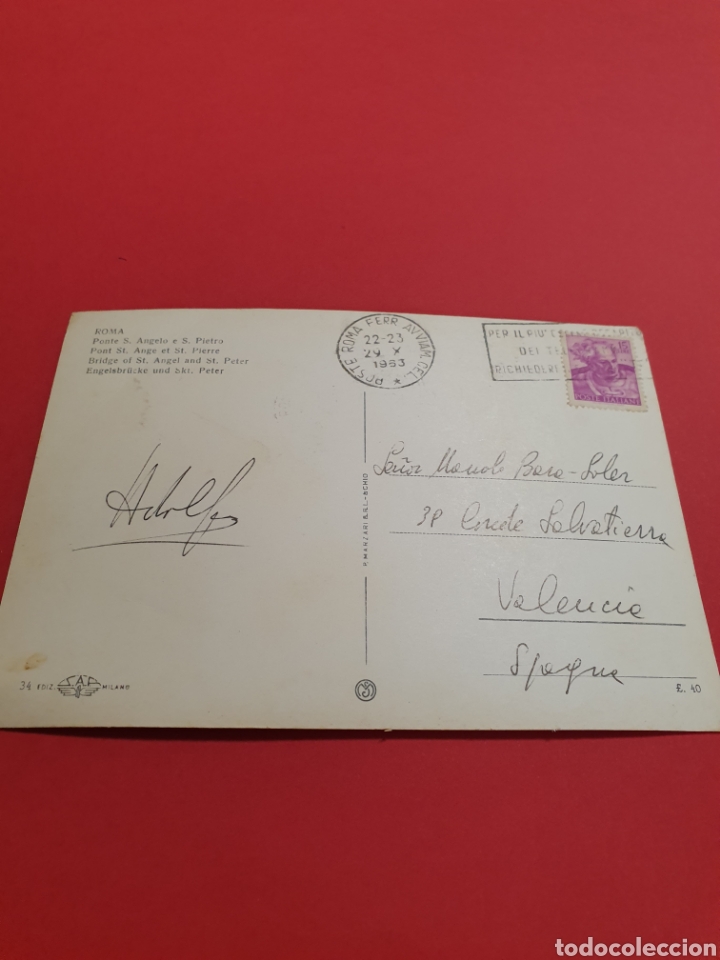 ROMA
Ponte S. Angelo e S. Pietro
Pont St. Ange et St. Pierre
Bridge of St. Angel and St. Peter
Engelsbrücke und Skt. Peter
POSTE ROMA FERR. AVVIAM. CEL.
22-23
29 X
1963
PER IL PIU'
DEI
RICHIEDERE
POSTE ITALIANE
Adolfo
Señor Manolo Basa-Soler
38 Conde Salvatierra
Valencia
Spagna
34 EDIZ. S.A.F. MILANO
E. 40
todocoleccion